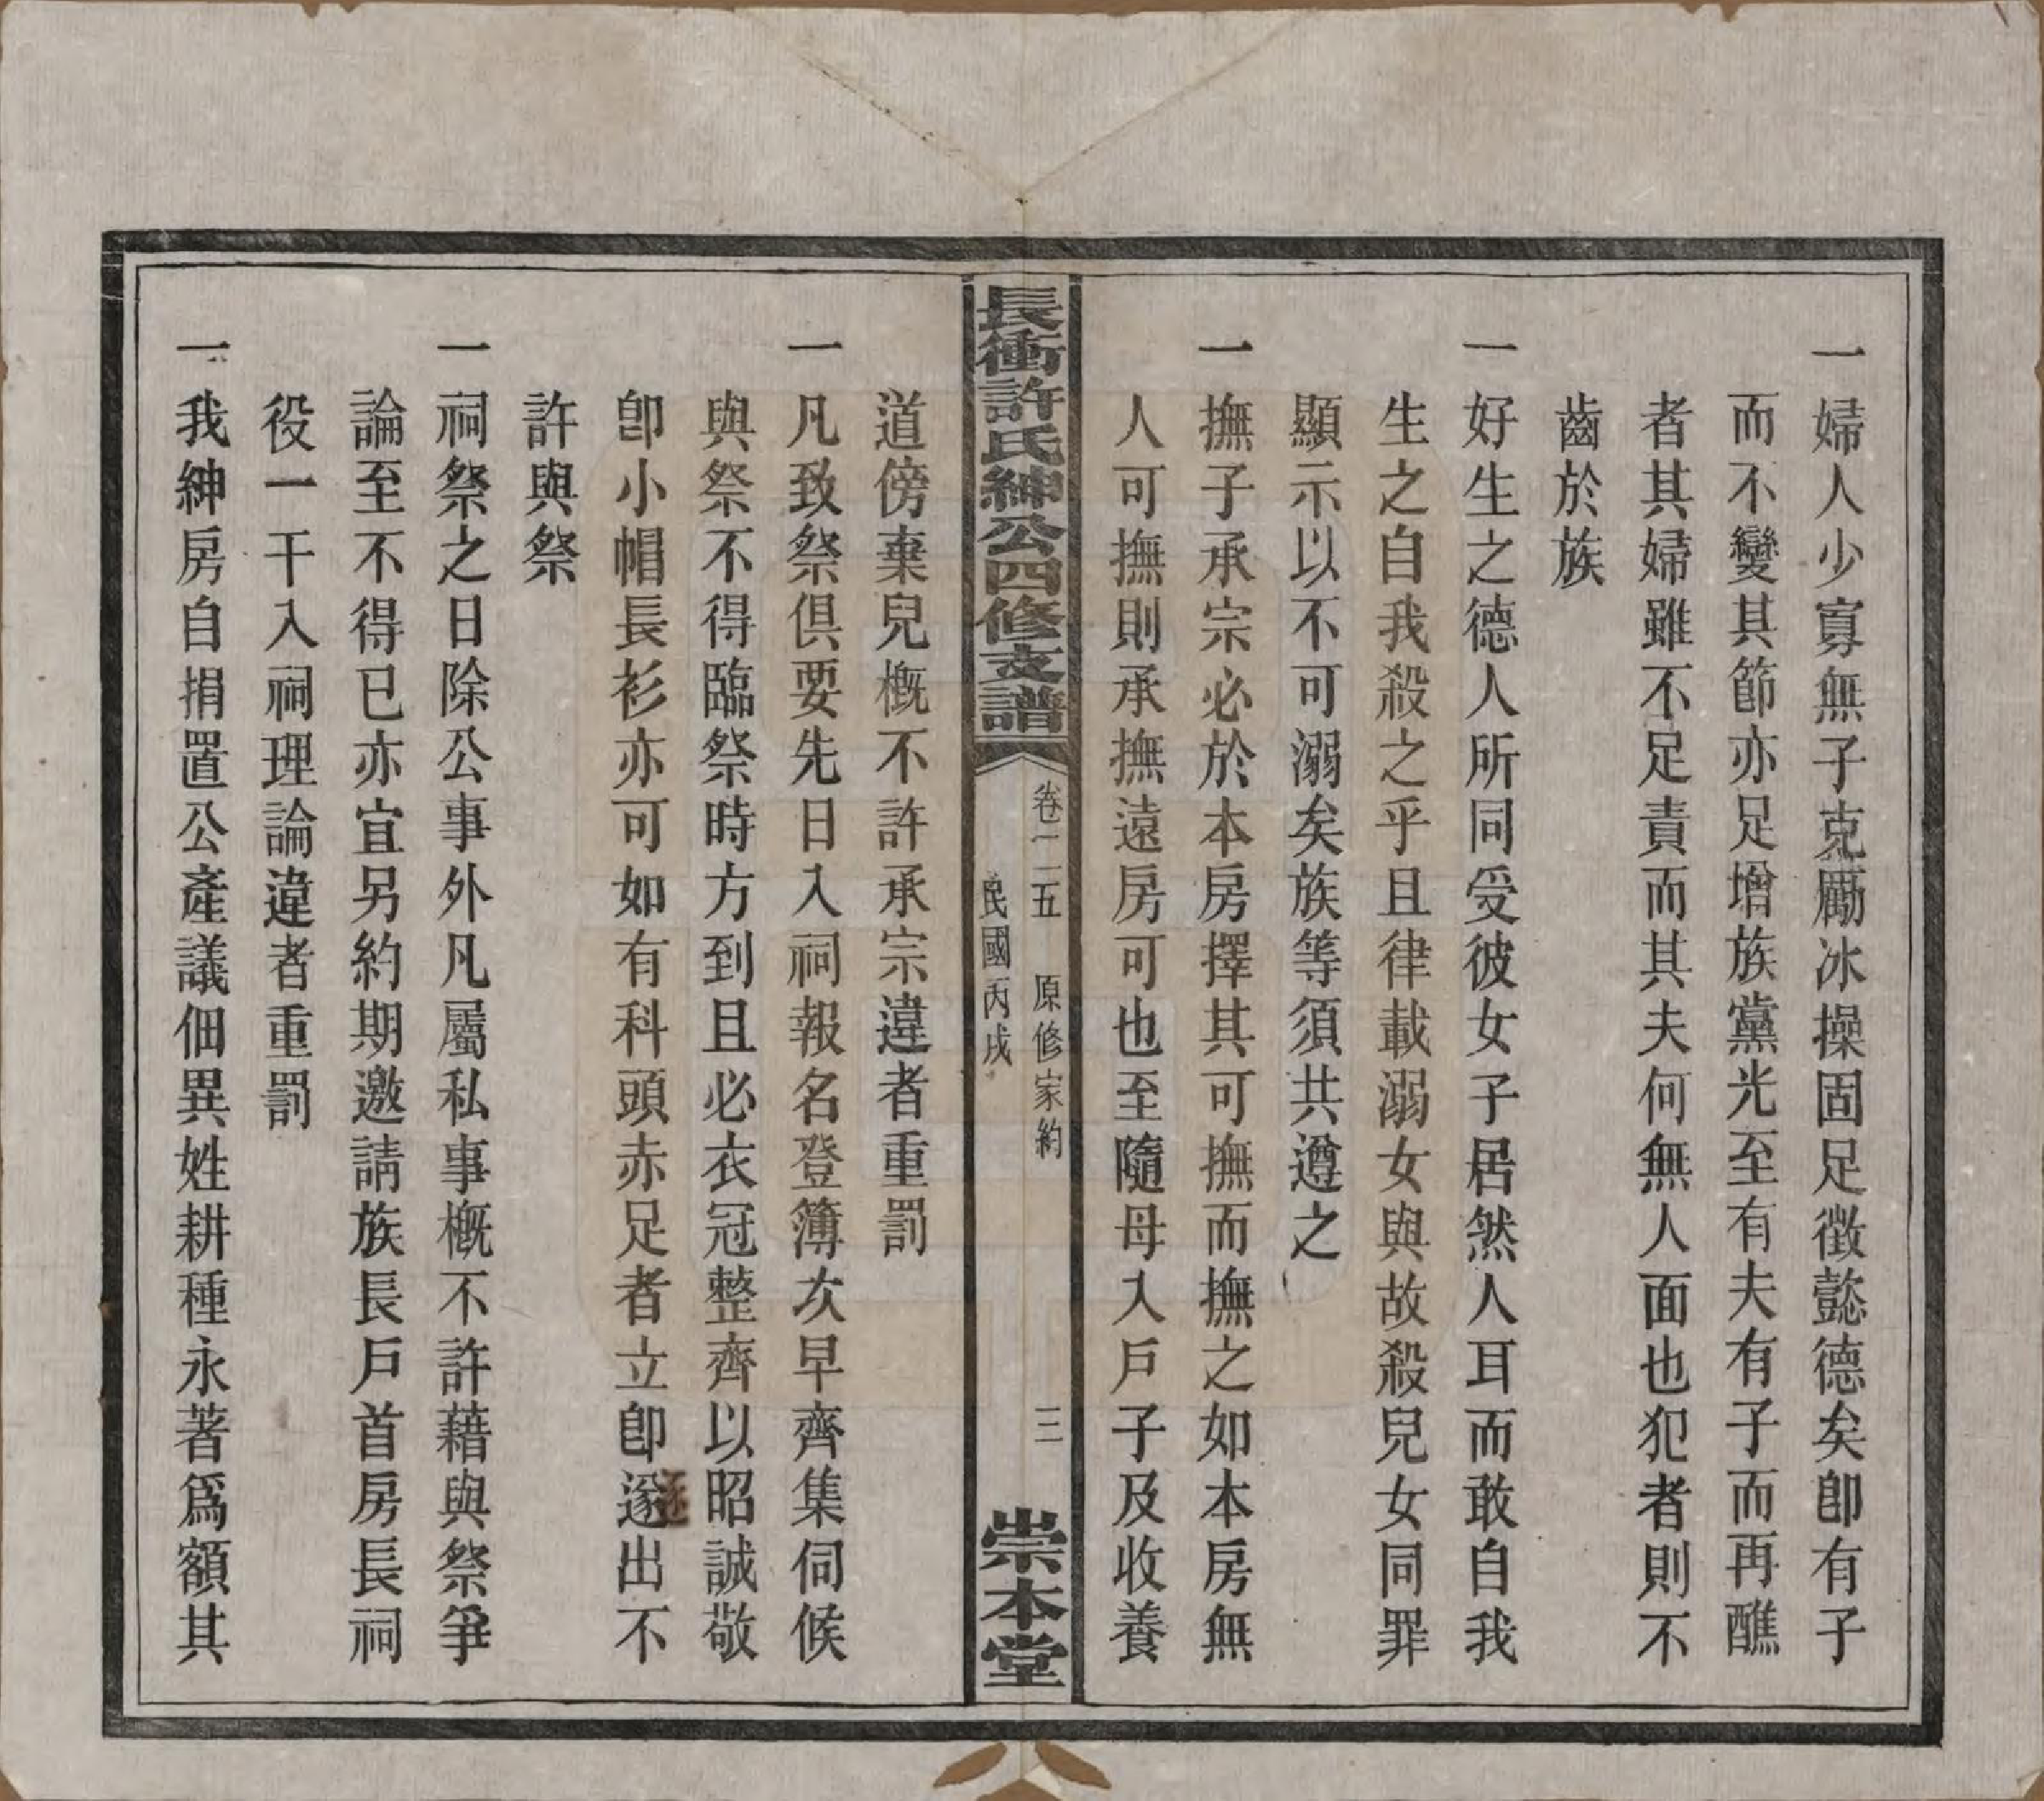 一婦人少寡無子克勵冰操固足徵懿德矣卽有子
而不變其節亦足增族黨光至有夫有子而再醮
者其婦雖不足責而其夫何無人面也犯者則不
齒於族
一好生之德人所同受彼女子居然人耳而敢自我
生之自我殺之乎且律載溺女與故殺兒女同罪
顯示以不可溺矣族等須共遵之
一撫子承宗必於本房擇其可撫而撫之如本房無
人可撫則承撫遠房可也至隨母入戶子及收養
長衝許氏紳公四修支譜
卷一二五 原修家約 三
民國丙戌
崇本堂
道傍棄兒槪不許承宗違者重罰
一凡致祭俱要先日入祠報名登簿次早齊集伺候
與祭不得臨祭時方到且必衣冠整齊以昭誠敬
卽小帽長衫亦可如有科頭赤足者立卽逐出不
許與祭
一祠祭之日除公事外凡屬私事槪不許藉與祭爭
論至不得已亦宜另約期邀請族長戶首房長祠
役一干入祠理論違者重罰
一我紳房自捐置公產議佃異姓耕種永著爲額其